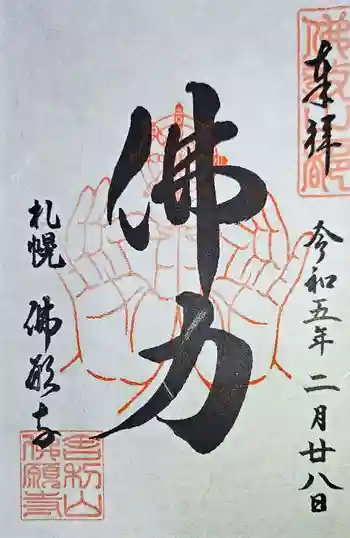 奉拝
令和五年二月廿八日
佛力
札幌 佛願寺
舎利山
佛願寺